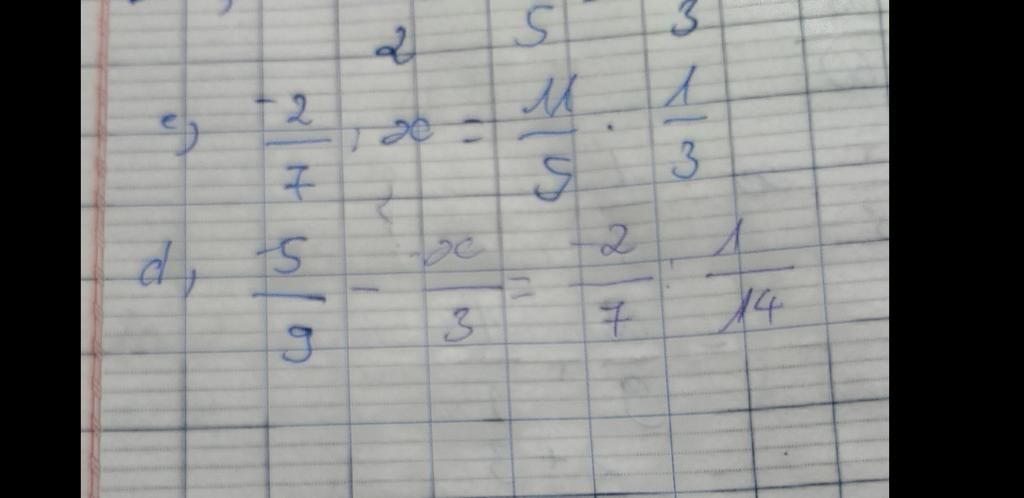 2 5 3
c, -2/7 . x = 11/5 . 1/3
d, -5/9 - x/3 = -2/7 : 1/14